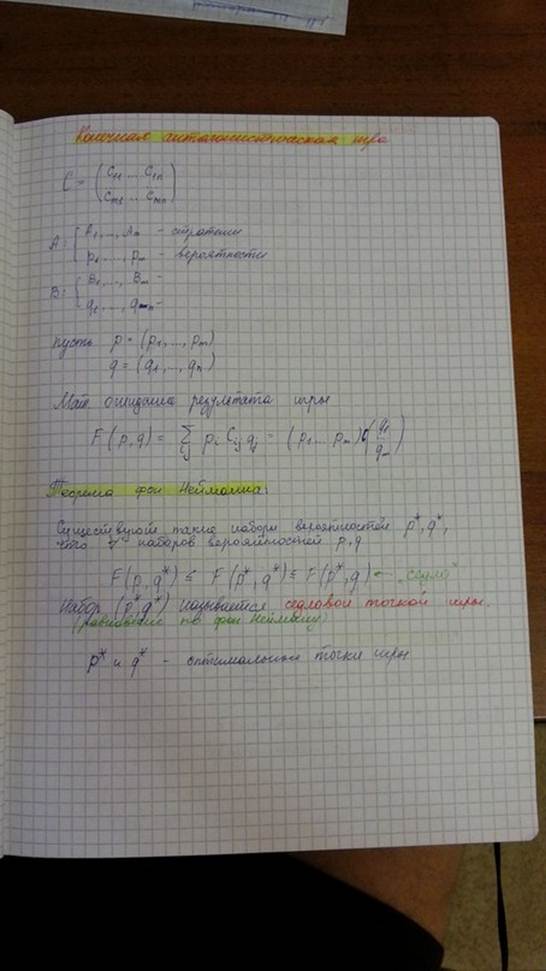 Конечная антагонистическая игра
C = (C11 ... C1n
Cm1 ... Cmn)
A: { A1, ..., Am - стратегии
p1, ..., pm - вероятности
B: { B1, ..., Bm -
q1, ..., qn -
пусть p = (p1, ..., pm)
q = (q1, ..., qn)
Мат ожидание результата игры
F(p,q) = Σij pi Cij qj = (p1 ... pm) C (q1 ... qm)
Теорема фон Неймана:
Существуют такие наборы вероятностей p*, q*,
что ∀ наборов вероятностей p, q
F(p, q*) ≤ F(p*, q*) ≤ F(p*, q) ← "седло"
Набор (p*, q*) называется седловой точкой игры.
(равновесие по фон Нейману)
p* и q* - оптимальные точки игры